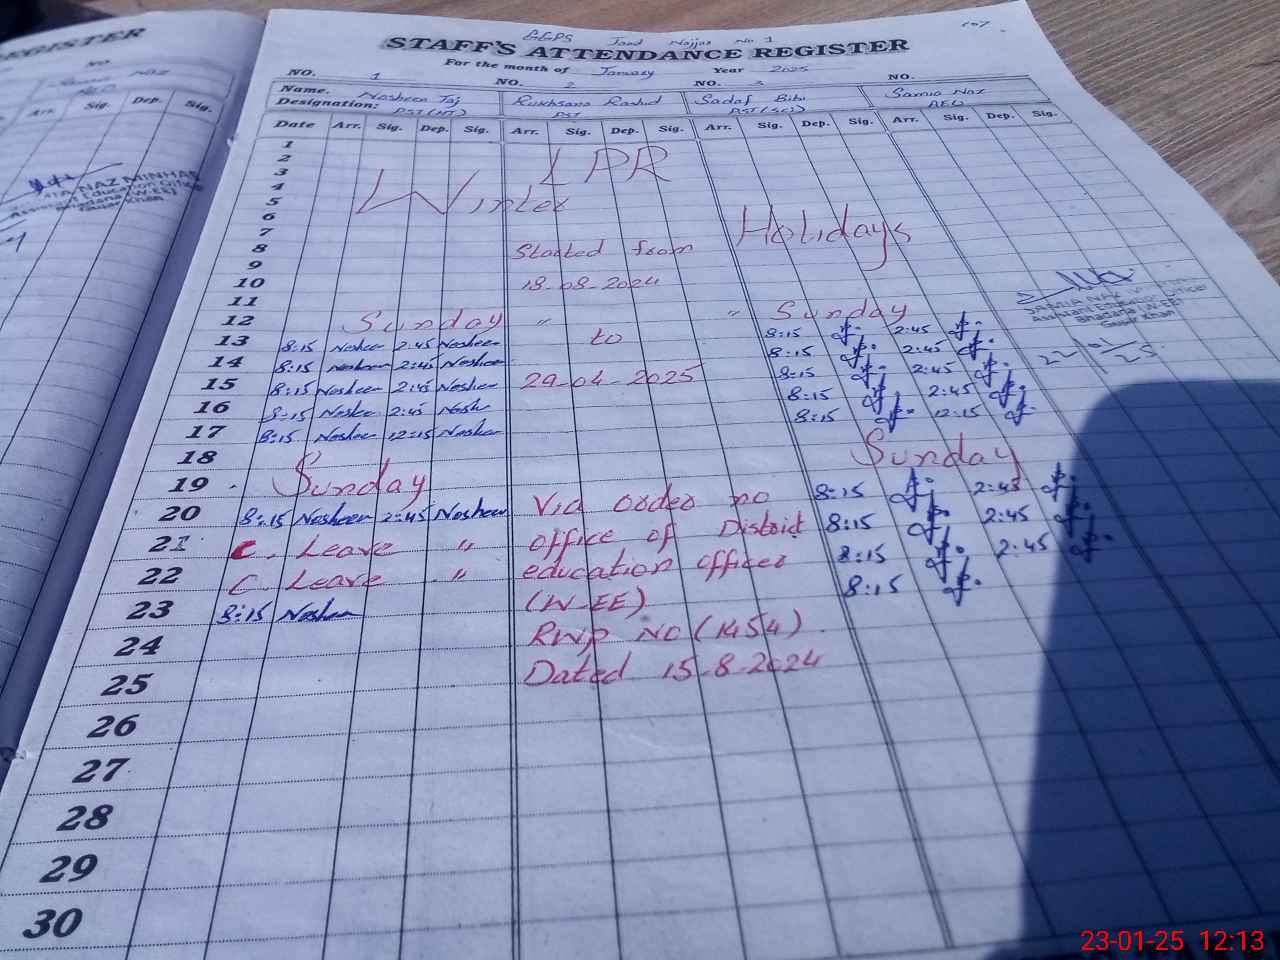 REGISTER
GGPS Jand Najjar No 1
107
STAFF'S ATTENDANCE REGISTER
For the month of January Year 2025
NO. 1 NO. 2 NO. 3 NO.
Name. Nosheen Taj Rukhsana Rashid Sadaf Bibi Samia Naz
Designation: PST(HT) PST PST(SC) AEO
Date Arr. Sig. Dep. Sig. Arr. Sig. Dep. Sig. Arr. Sig. Dep. Sig. Arr. Sig. Dep. Sig.
Arr. Sig. Dep. Sig.
1
2
3 LPR
4
5 Winter
6
7 Holidays
8 Started from
9
10 18-08-2024
11
12 Sunday " " Sunday
13 8:15 Nosheen 2:45 Nosheen to 8:15 2:45
14 8:15 Nosheen 2:45 Nosheen 8:15 2:45
15 8:15 Nosheen 2:45 Nosheen 29-04-2025 8:15 2:45
16 8:15 Noshee 2:45 Noshe 8:15 2:45
17 8:15 Nosheen 12:15 Nosheen 8:15 12:15
18
19 Sunday Sunday
20 8:15 Nosheen 2:45 Nosheen Via order no 8:15 2:45
21 C. Leave " office of District 8:15 2:45
22 C. Leave " education officer 8:15 2:45
23 8:15 Nosheen (W-EE) 8:15
24 RWP NO (1454)
25 Dated 15-8-2024
26
27
28
29
30
NAZ MINHAS
Assistant Education Officer
Bhadana (W-EE)
Gujar Khan
SAMIA NAZ
Assistant Education Officer
Bhadana (W-EE)
Gujar Khan
22/01/25
23-01-25 12:13